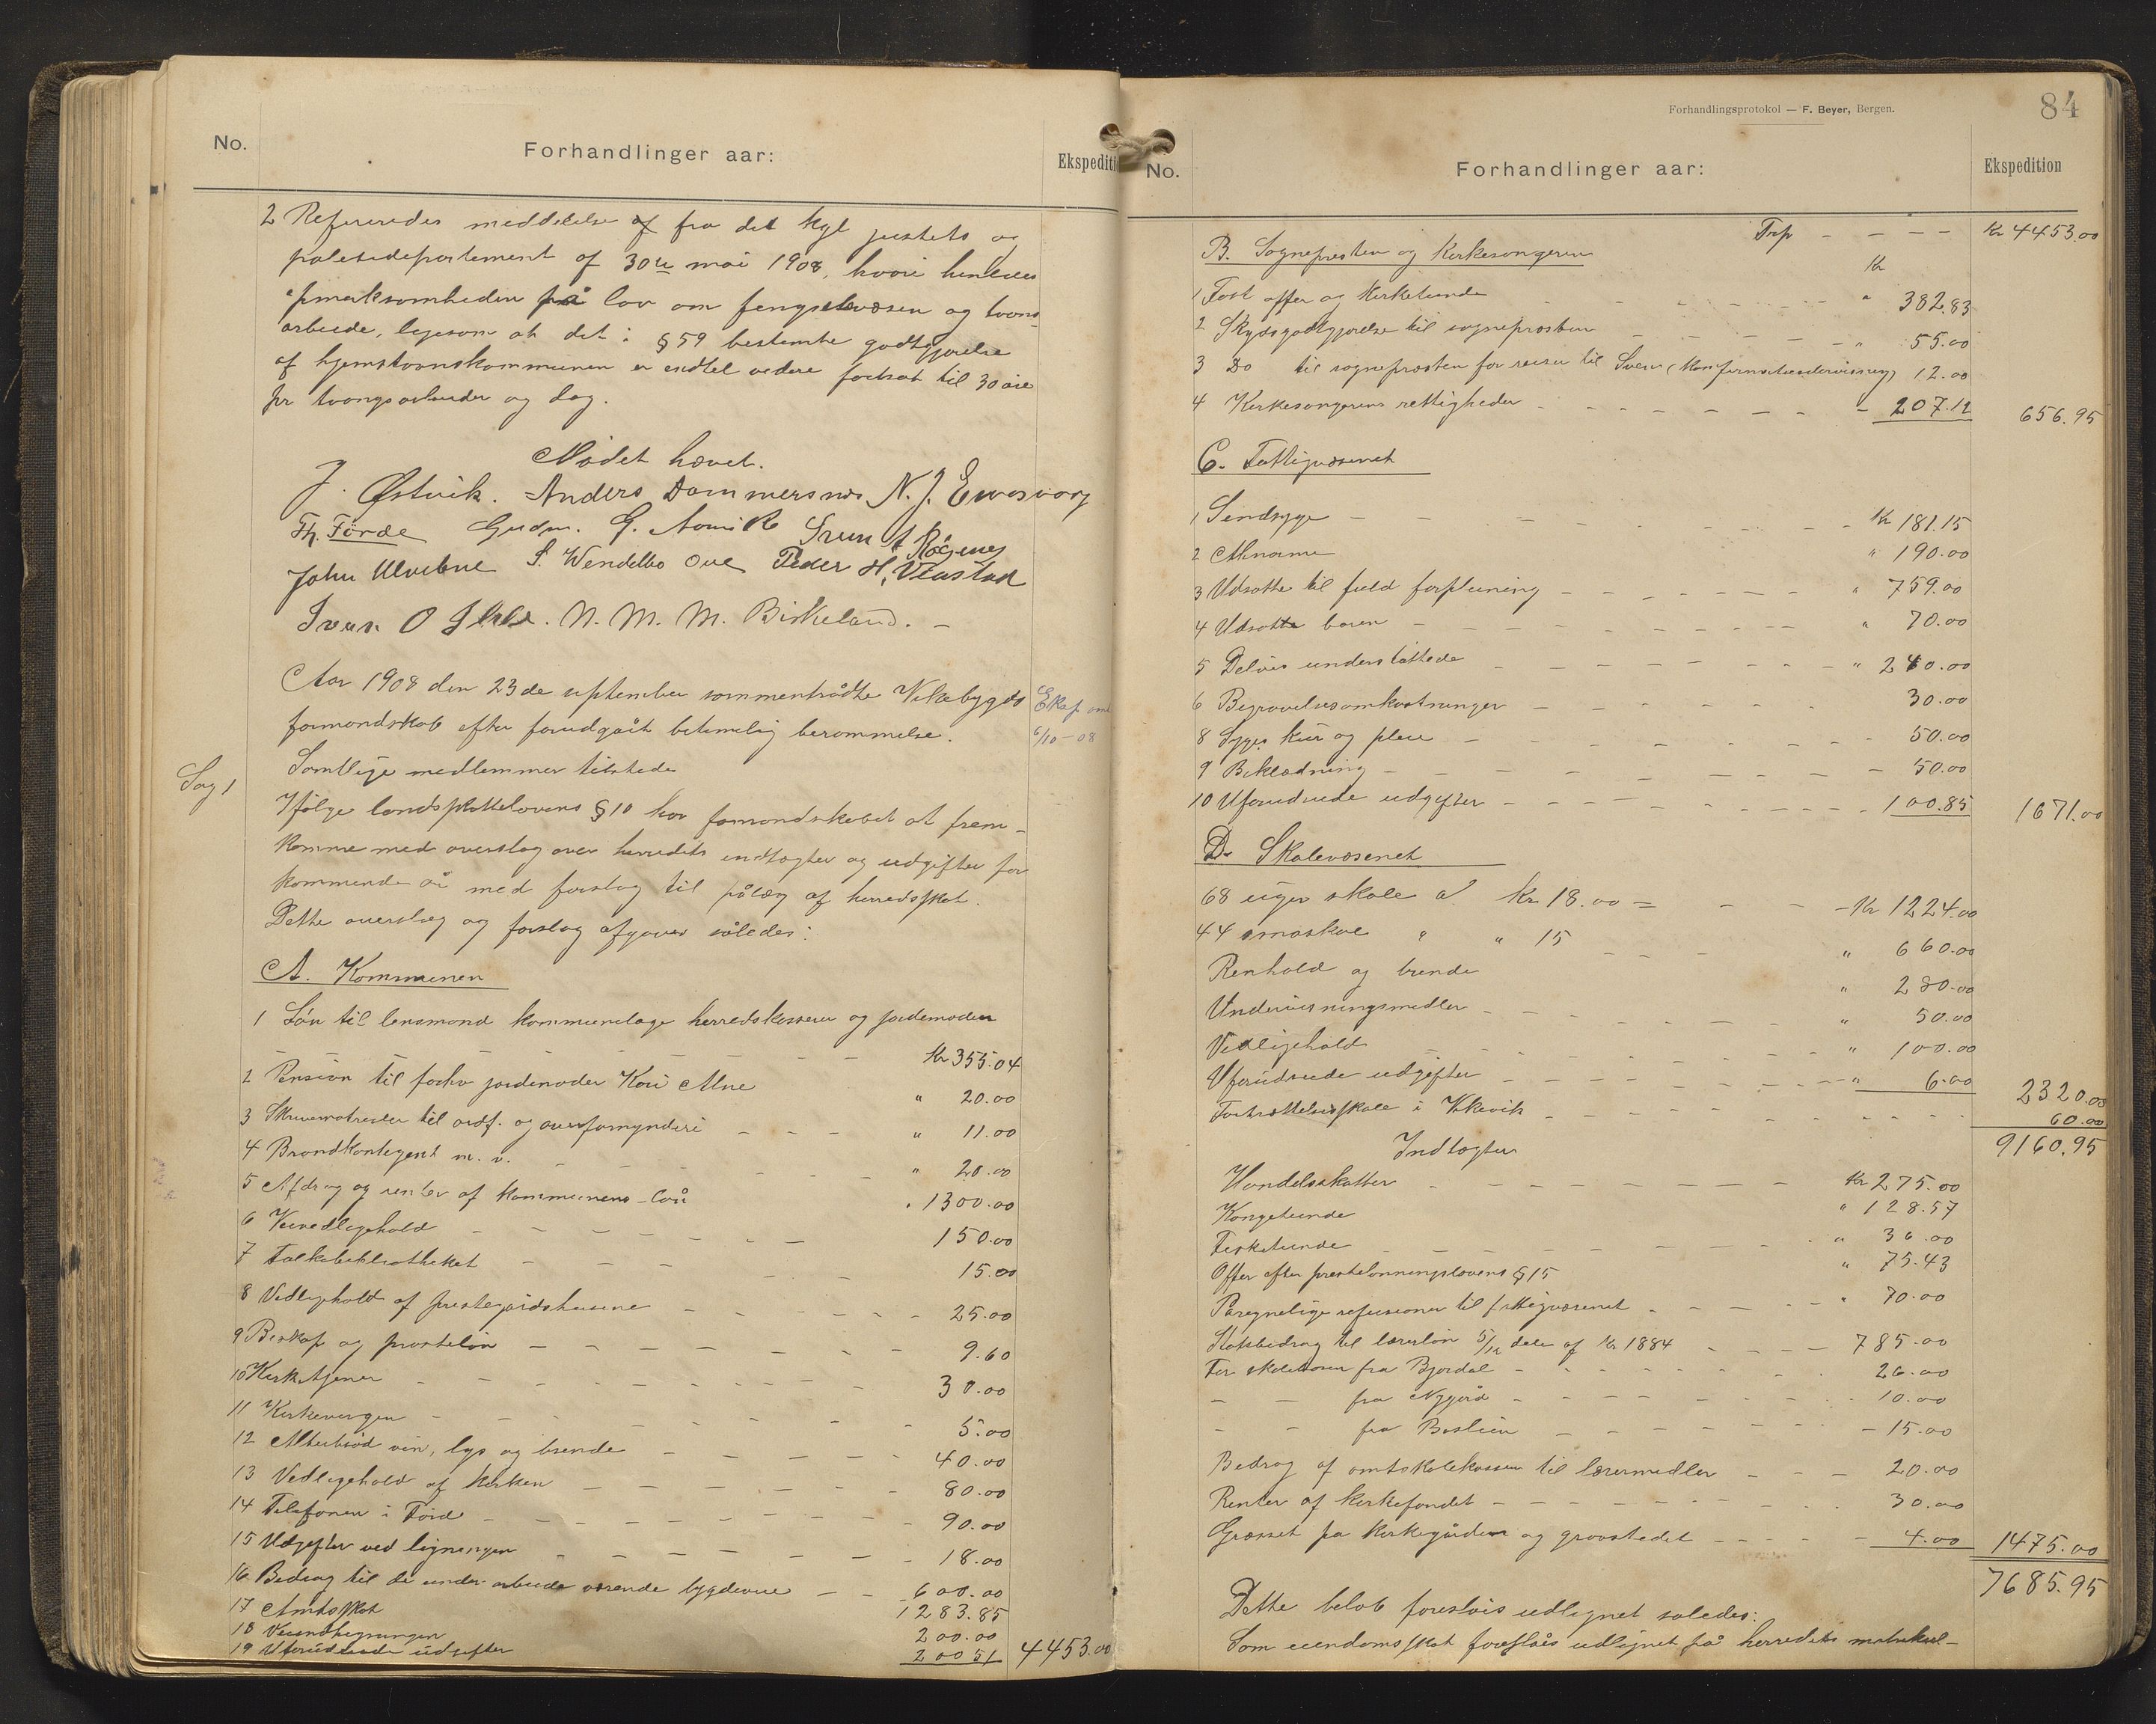 No.
Forhandlinger aar:
Ekspediti
2 Refereredes meddelelse af fra det kgl justets og
politidepartement af 30te mai 1908, hvori henledes
opmerksomheden på lov om fengselsvæsen og tvangs
arbeide, ligesom at det i § 59 bestemte godtgjørelse
af hjemstavnskommunen er indtil videre fastsat til 30 øre
pr tvangsarbeider og dag.
Mødet hævet.
J. Østvik. Anders Dommersnes N. J.
Th. Førde Gudm. G. Svein Røgenes
John Ulvebne S. Wendelbo Ove Peder H. Vlastad
Iver O. N. M. M. Birkeland. –
Aar 1908 den 23de september sammentrådte Vikebygds
formandskab efter forudgåit betimelig berammelse.
Eksp
6/10 – 08
Samtlige medlemmer tilstede
Sag 1
Ifølge landsskattelovens § 10 har formandskabet at frem-
komme med overslag over herredets indtægter og udgifter for
kommende år med forslag til pålæg af herredsskat.
Dette overslag og forslag afgaves således:
A. Kommunen
1 Løn til lensmand kommunelæge herredskasserer og jordemoder
Kr 355.04
2 Pension til forhv jordemoder Kari Alne " 20.00
3 Skrivematrialer til ordf. og overformynderi " 11.00
4 Brandkontigent m. v. " 20.00
5 Afdrag og renter af kommunens lån " 1300.00
6 Veivedligehold 150.00
7 Folkebibliotheket 15.00
8 Vedligehold af prestegårdshusene 25.00
9 Biskop og prosteløn 9.60
10 Kirketjener 30.00
11 Kirkevergen 5.00
12 Alterbrød vin, lys og brende 40.00
13 Vedligehold af kirken 80.00
14 Telefonen i Førde 90.00
15 Udgifter ved ligningen 18.00
16 Bedrag til de under arbeide værende bygdeveie 600.00
17 Amtsskat 1283.85
18 Veiindhegningen 200.00
19 Uforudseede udgifter 200 51 4453.00
Forhandlingsprotokol — F. Beyer, Bergen.
84
No.
Forhandlinger aar:
Ekspedition
Trp – – – – Kr 4453.00
B. Sognepresten og Kirkesangeren
Kr
1 Fast offer og kirketiende " 382.83
2 Skydsgodtgjørelse til sognepresten " 55.00
3 Do til sognepresten for reiser til (Konfirmationsundervisning) 12.00
4 Kirkesangerens rettigheder 207.12 656.95
C. Fattigvæsenet
1 Sindsyge Kr 181.15
2 Almanne " 190.00
3 Udsatte til fuld forpleining " 759.00
4 Udsatte baren " 70.00
5 Delvis understøttede " 240.00
6 Begravelsesomkostninger 30.00
8 Syges kur og pleie 50.00
9 Beklædning 50.00
10 Uforudseede udgifter 100.85 1671.00
D. Skolevæsenet
68 uger skole a Kr 18.00 = – – Kr 1224.00
44 småskole " " 15 " 660.00
Renhold og brende " 280.00
Undervisningsmidler " 50.00
Vedligehold " 100.00
Uforudseede udgifter " 6.00 2320.00
Fortsættelsesskole i Vikevik 60.00
9160.95
Indtægter
Handelsskatter Kr 275.00
Kongetiende " 128.57
Fisketiende " 36.00
Offer efter prestelønningslovens § 15 " 75.43
Påregnelige refusioner til fattigvæsenet " 70.00
Statsbedrag til lærerløn 5/12 dele af Kr 1884 785.00
For skolebarn fra Bjordal 26.00
– – fra Nygjerd 10.00
– – fra Baslien 15.00
Bedrag af amtskolekassen til læremidler 20.00
Renter af kirkefondet 30.00
Græsset på kirkegården og gravstedet 4.00 1475.00
7685.95
Dette beløb foreslåes udlignet således:
Som eiendomsskat foreslåes udlignet på herredets matrikul-